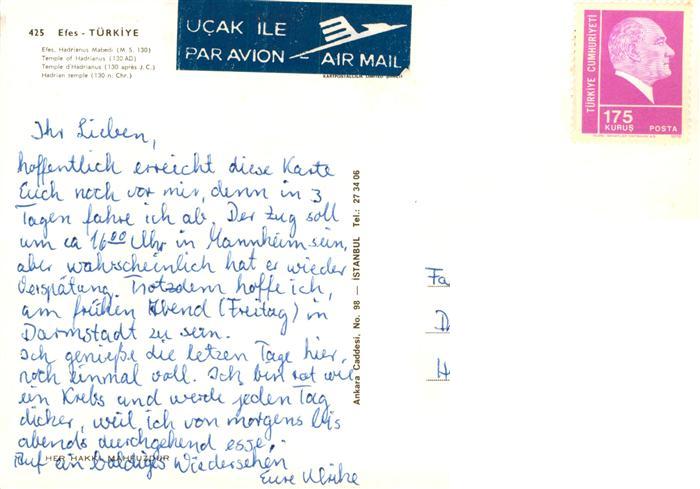 425 Efes - TÜRKİYE
Efes, Hadrianus Mabedi (M. S. 130)
Temple of Hadrianus (130 AD)
Temple d'Hadrianus (130 après J. C.)
Hadrian temple (130 n. Chr.)
UÇAK İLE
PAR AVION - AIR MAIL
TÜRKİYE CUMHURİYETİ
175
KURUŞ POSTA
Ihr Lieben,
hoffentlich erreicht diese Karte
Euch noch vor mir, denn in 3
Tagen fahre ich ab. Der Zug soll
um ca 16 00 Uhr in Mannheim sein,
aber wahrscheinlich hat er wieder
Verspätung. Trotzdem hoffe ich,
am frühen Abend (Freitag) in
Darmstadt zu sein.
Ich genieße die letzen Tage hier,
noch einmal voll. Ich bin rot wie
ein Krebs und werde jeden Tag
dicker, weil ich von morgens bis
abends durchgehend esse.
Auf ein baldiges Wiedersehen
Eure Ulrike
HER HAKKI MAHFUZDUR
Ankara Caddesi, No. 98 — ISTANBUL Tel.: 27 34 06
Fa
D
H